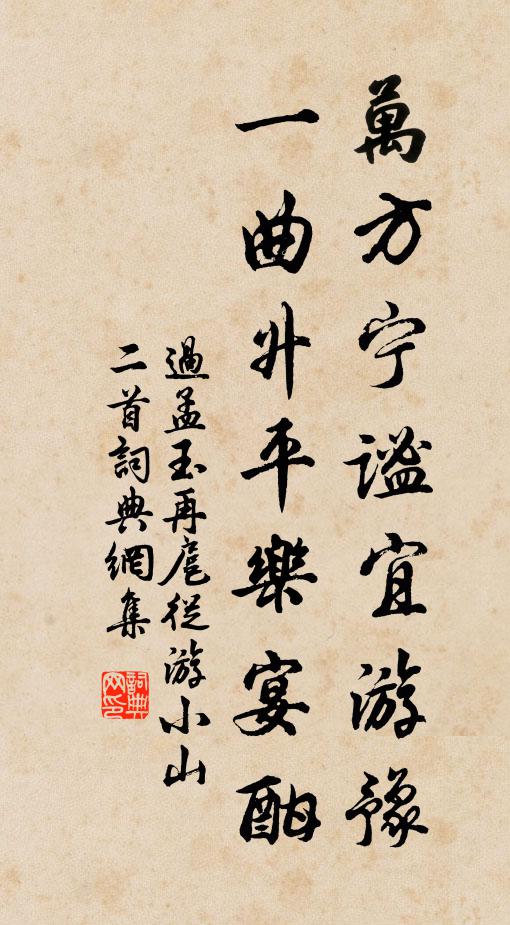 萬方宁謐宜游豫
一曲升平樂宴酣
過孟玉再扈從游小山
二首詞典網集
詞典
网印